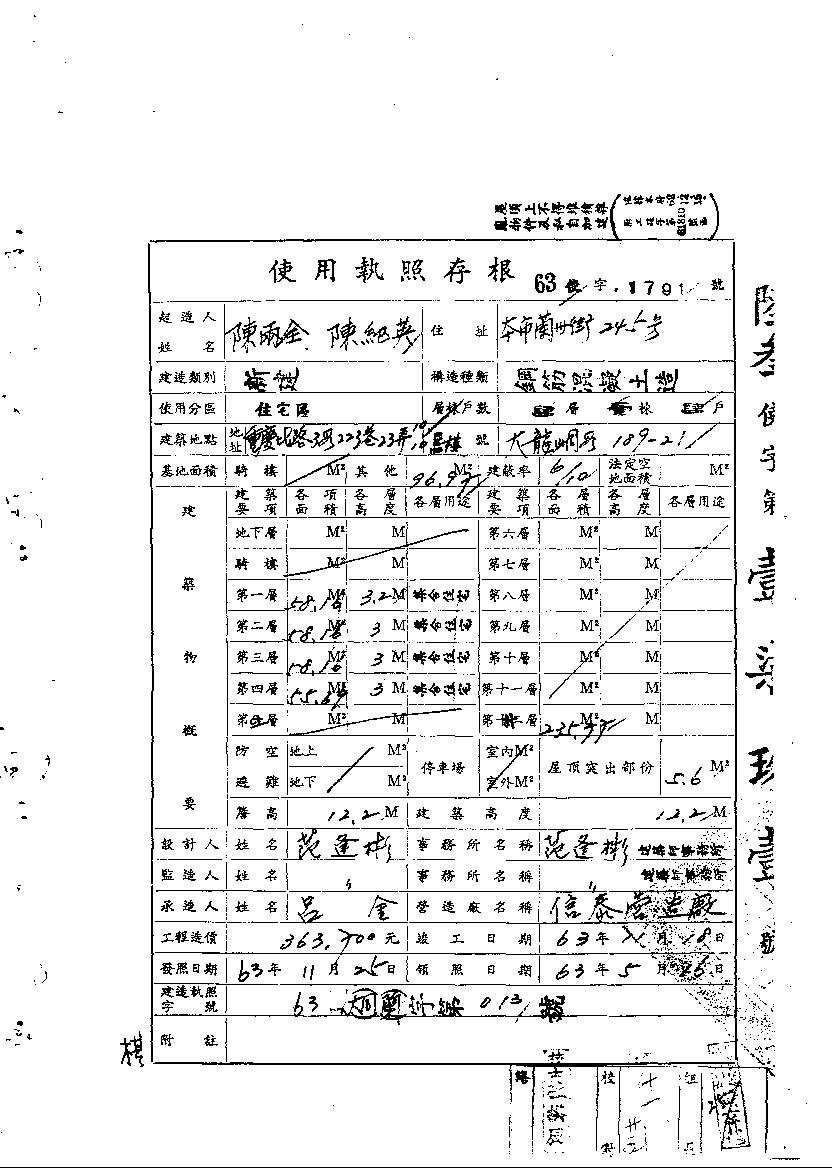 屋頂上不得堆積雜
亂物件及私自加建
使用執照存根 63 使字 1791 號
起造人姓名 陳雨全 陳紀英 住址 本市蘭州街 245號
建造類別 新建 構造種類 鋼筋混凝土造
使用分區 住宅區 層棟戶數 層 棟 戶
建築地點 地址 重慶北路3段223巷23弄 號 大龍峒段 189-21
基地面積 騎樓 M² 其他 96.97 M² 建蔽率 6/10 法定空地面積 M²
建築物概要
建築要項 各項面積 各層高度 各層用途 建築要項 各層面積 各層高度 各層用途
地下層 M² M 第六層 M² M
騎樓 M² M 第七層 M² M
第一層 58.18 M² 3.2 M 集合住宅 第八層 M² M
第二層 58.18 M² 3 M 集合住宅 第九層 M² M
第三層 58.18 M² 3 M 集合住宅 第十層 M² M
第四層 M² 3 M 集合住宅 第十一層 M² M
第五層 M² M M² M
防空避難 地上 M² 停車場 室內 M² 屋頂突出部份 5.6 M²
地下 M² 室外 M²
簷高 12.2 M 建築高度 12.2 M
設計人 姓名 范逢彬 事務所名稱 范逢彬 建築師事務所
監造人 姓名 〃 事務所名稱 〃 建築師事務所
承造人 姓名 呂金 營造廠名稱 信泰營造廠
工程造價 363,700 元 竣工日期 63年 11月 18日
發照日期 63年 11月 25日 領照日期 63年 5月 26日
建造執照字號 63 013
附註
使字第壹柒玖壹號
棋
校對